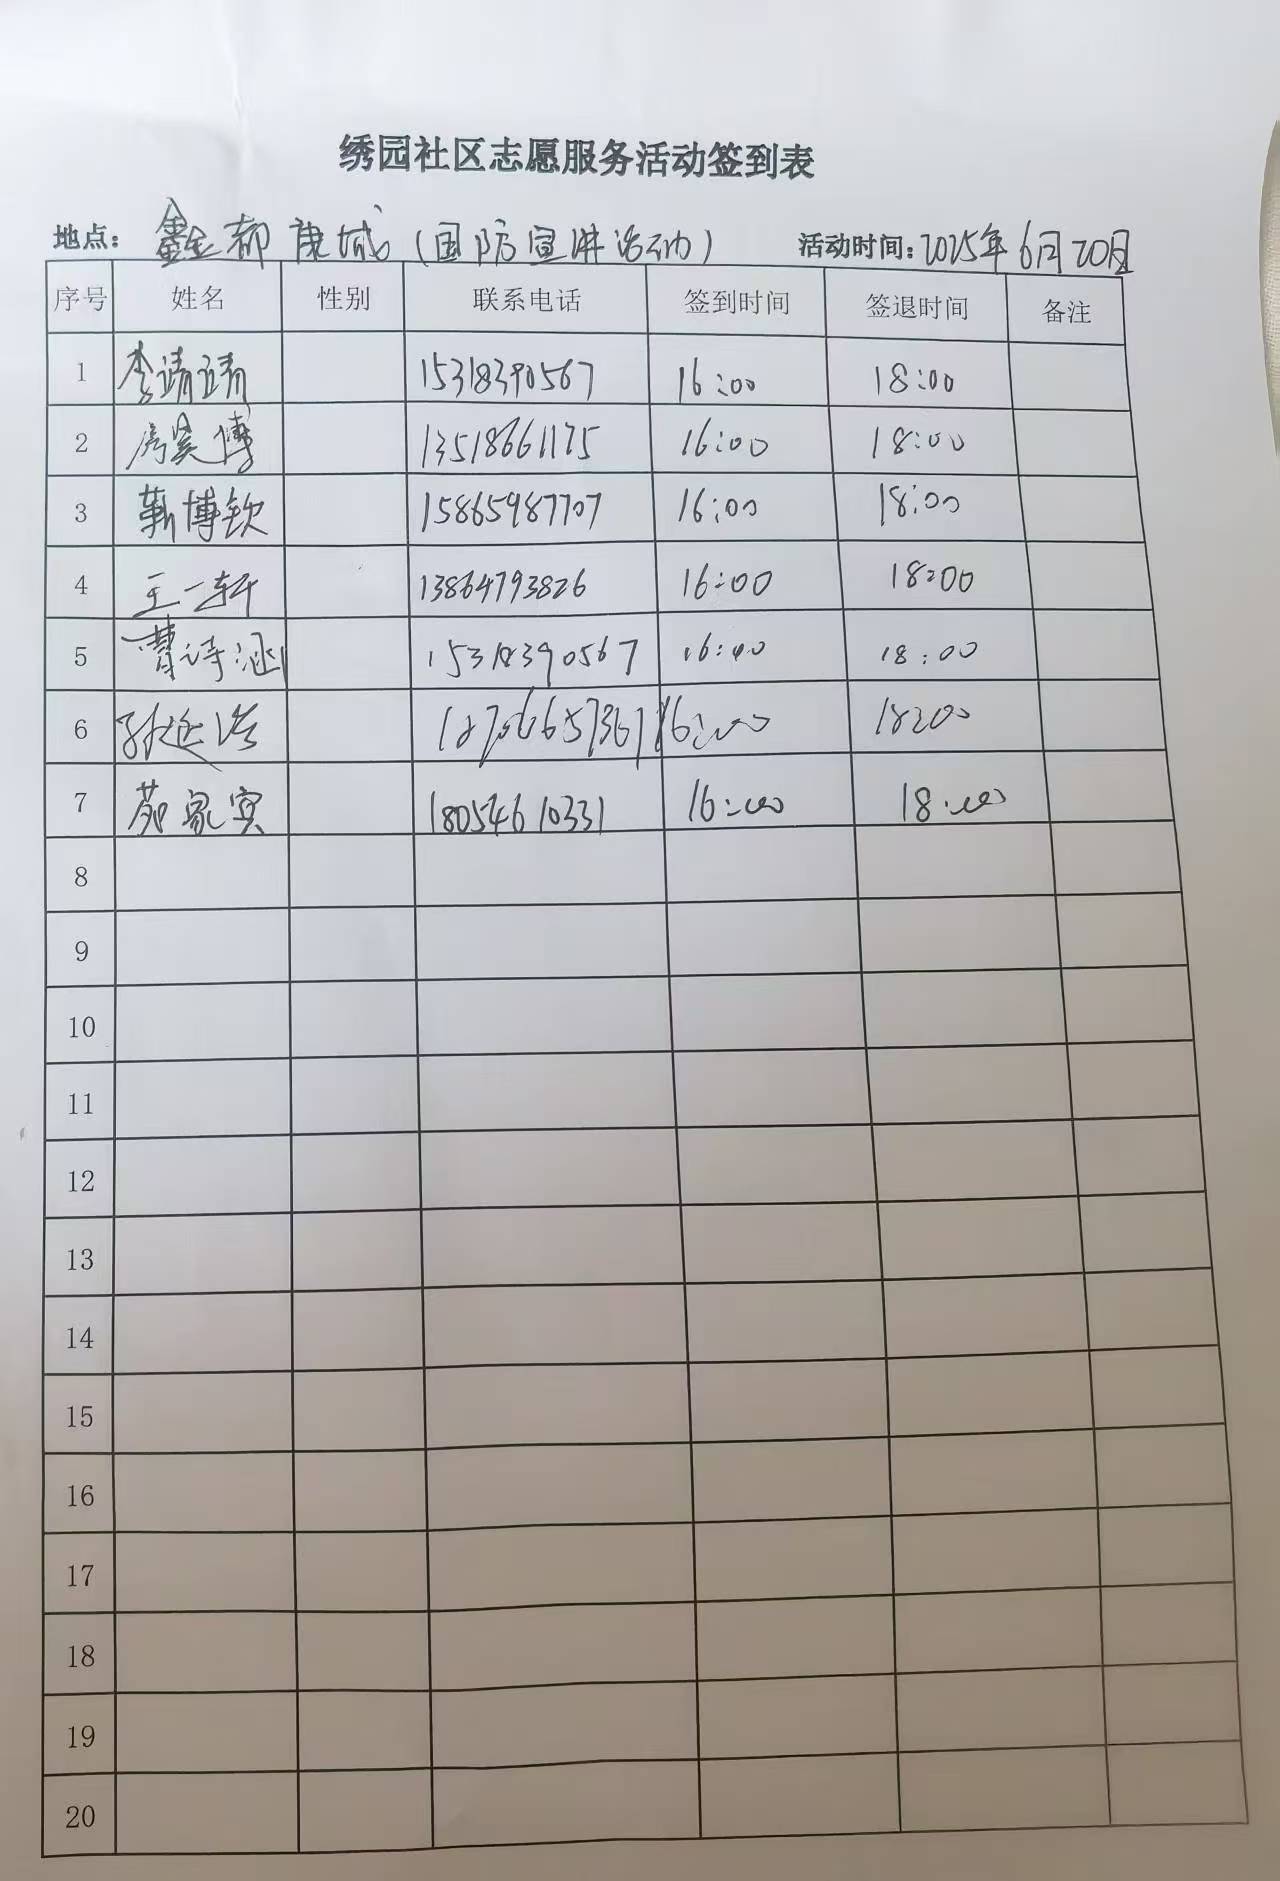 绣园社区志愿服务活动签到表
地点：鑫都康城（国防宣讲活动） 活动时间：2025年6月20日
序号 姓名 性别 联系电话 签到时间 签退时间 备注
1 李靖靖 15318390567 16:00 18:00
2 房昊博 13518661175 16:00 18:00
3 靳博钦 15865987707 16:00 18:00
4 王一轩 13864793826 16:00 18:00
5 曹诗涵 15318390567 16:00 18:00
6 孙延浩 16:00 18:00
7 苑家宾 18054610331 16:00 18:00
8
9
10
11
12
13
14
15
16
17
18
19
20